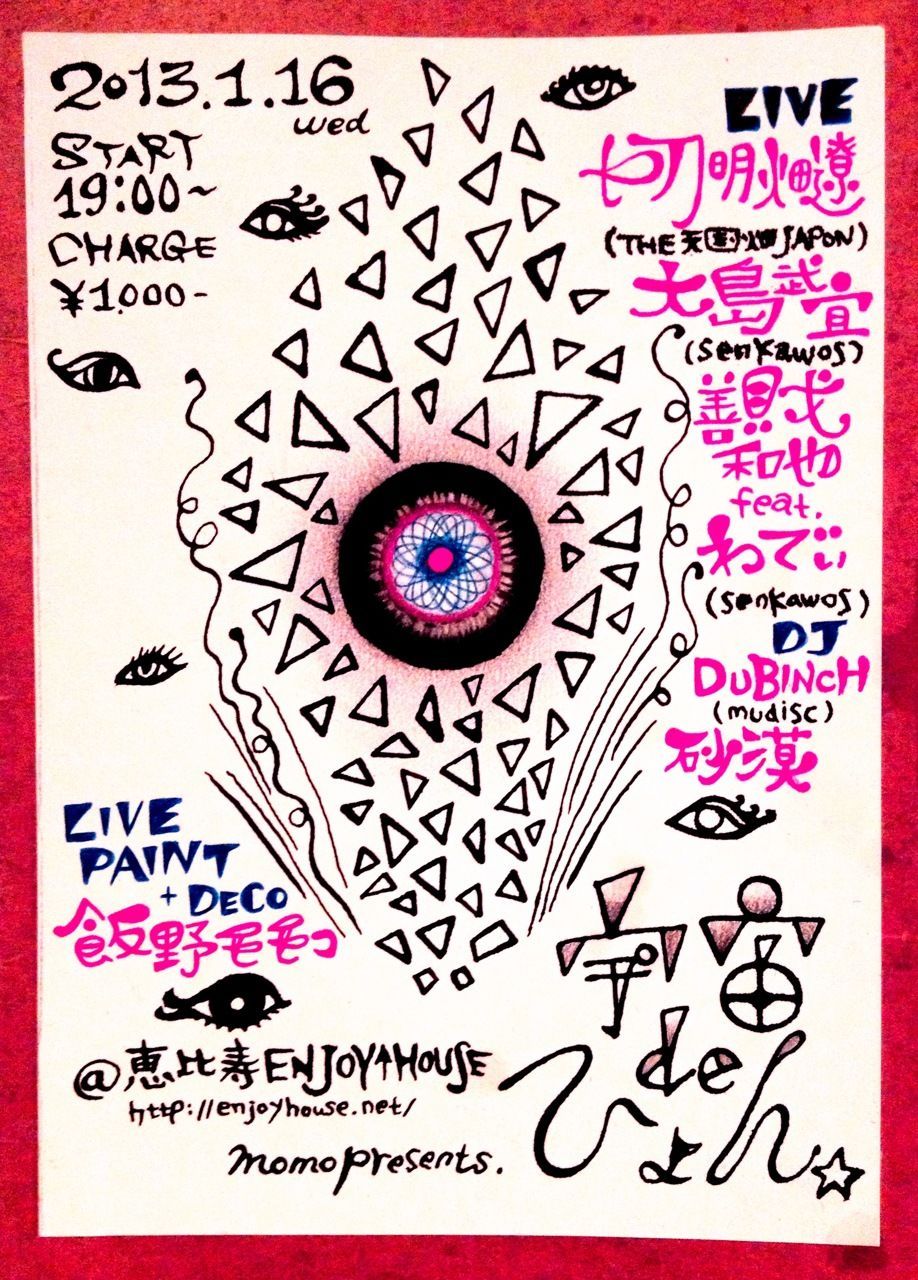 2013.1.16
wed
START
19:00~
CHARGE
¥1.000-
LIVE
切明畑遼
(THE 天国畑 JAPON)
大島武宜
(senkawos)
善財
和也
feat.
わでぃ
(senkawos)
DJ
DUBINCH
(mudisc)
砂漠
LIVE
PAINT
+ DECO
飯野モモコ
宇宙
de
ひょん☆
@恵比寿ENJOY↑HOUSE
http://enjoyhouse.net/
momo presents.